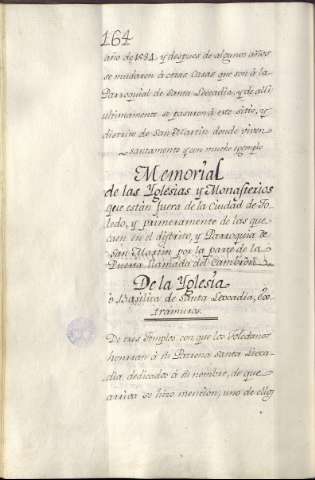 164
año de 1584 y despues de algunos años
se mudaron à otras Casas que son à la
Parroquial de Santa Leocadia, y de alli
ultimamente se pasaron à este sitio, y
distrito de San Martin donde viven
santamente y con mucho exemplo
Memorial
de las Yglesias y Monasterios
que están fuera de la Ciudad de To-
ledo, y primeramente de las que
caen en el distrito, y Parroquia de
San Martin por la parte de la
Puerta llamada del Cambron.
De la Yglesia
ò Basilica de Santa Leocadia, Ex-
tramuros.
De tres Templos con que los Toledanos
honrran à su Patrona Santa Leoca-
dia, dedicados à su nombre, de que
arriva se hizo mencion; uno de ellos